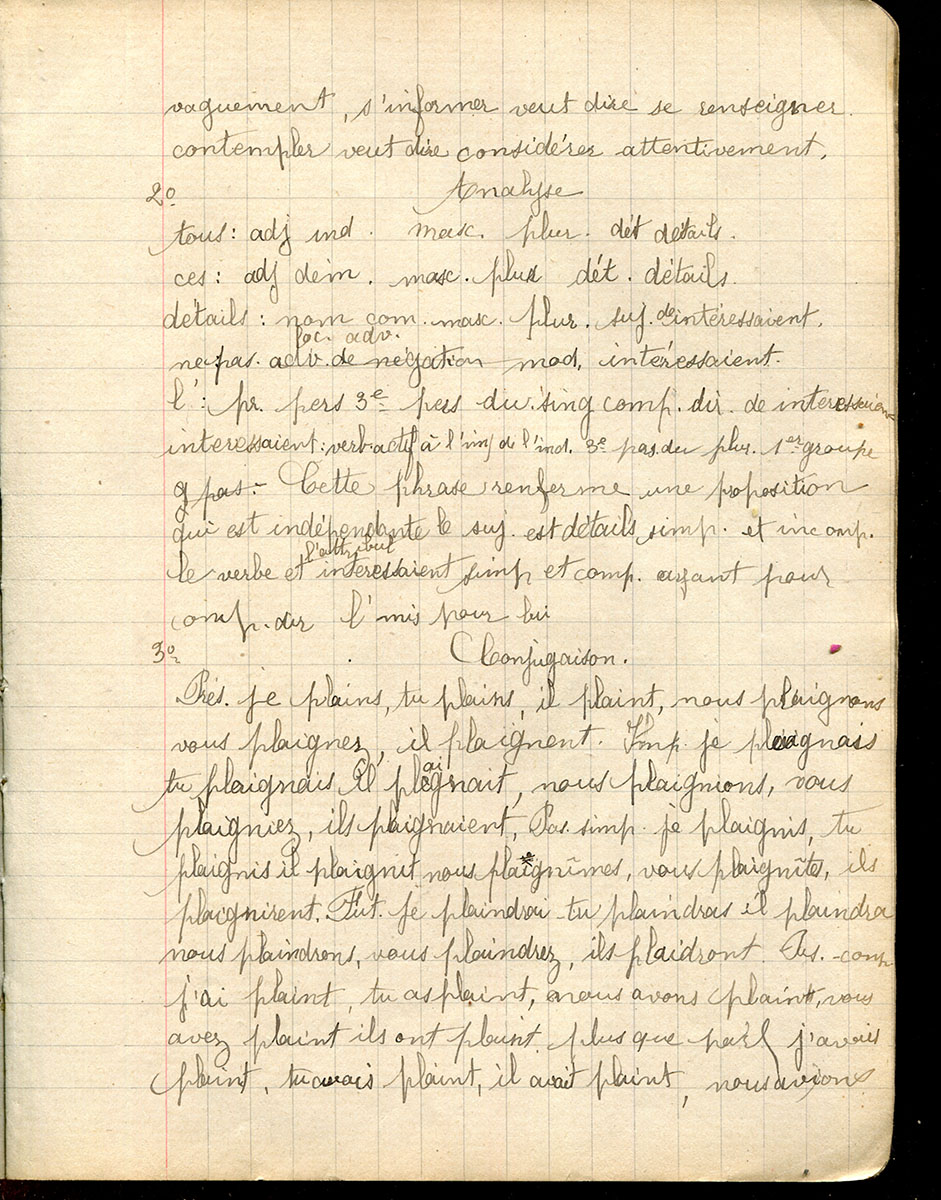 vaguement, s'informer veut dire se renseigner.
contempler veut dire considérer attentivement.
2º Analyse
tous : adj ind. masc. plur. dét détails.
ces : adj dém. masc. plur dét. détails.
détails : nom com. masc. plur. suj. de intéressaient.
loc. adv.
ne pas. adv. de négation mod. intéressaient.
l' : pr. pers 3e pers du sing comp. dir. de interessaient
interessaient : verb actif à l'imp de l'ind. 3e pas. du plur. 1er groupe
pas :- Cette phrase renferme une proposition
qui est indépendante le suj. est détails simp. et incomp.
l'attribut
le verbe et interessaient simp et comp. ayant pour
comp. dir l' mis pour lui
3º Conjugaison.
Prés. je plains, tu plains, il plaint, nous plaignons
vous plaignez, il plaignent. Imp. je plaignais
tu plaignais il plaignait, nous plaignions, vous
plaigniez, ils plaignaient, Pas. simp. je plaignis, tu
plaignis il plaignit nous plaignîmes, vous plaignîtes, ils
plaignirent. Fut. je plaindrai tu plaindras il plaindra
nous plaindrons, vous plaindrez, ils plaidront. Pas. - comp
j'ai plaint, tu as plaint, nous avons plaint, vous
avez plaint ils ont plaint. plus que parf j'avais
plaint, tu avais plaint, il avait plaint, nous avions